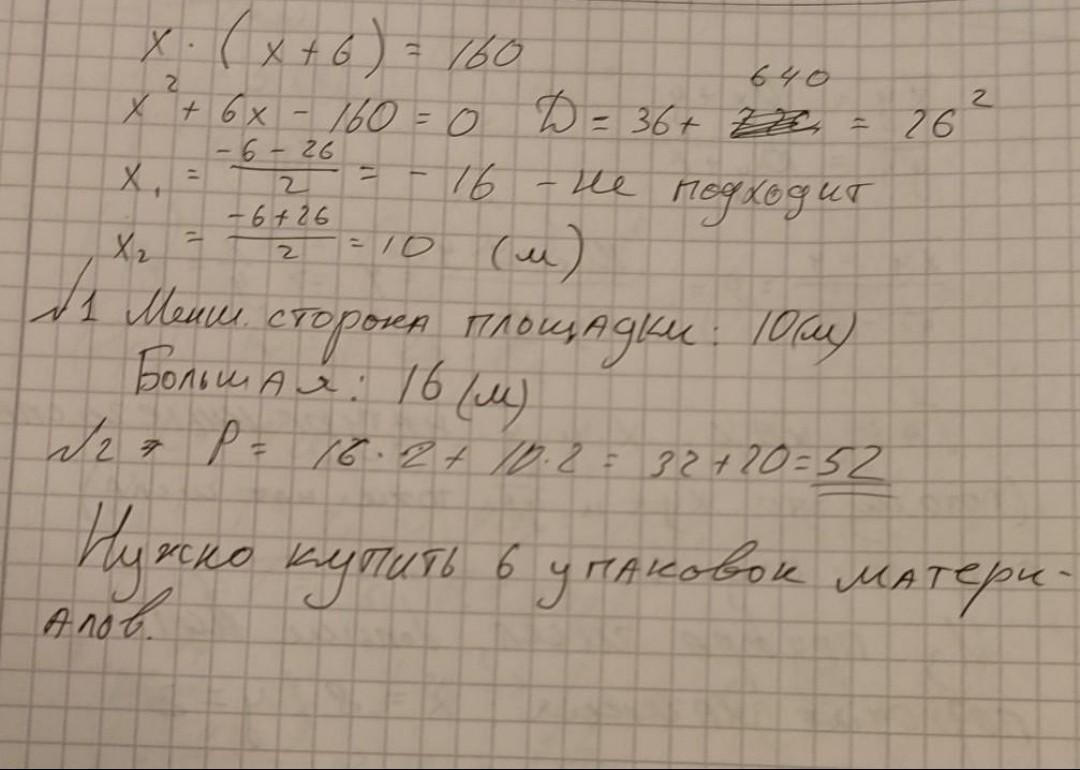 x · (x+6) = 160
x² + 6x - 160 = 0 D = 36 + 640 = 26²
x₁ = (-6-26)/2 = -16 - не подходит
x₂ = (-6+26)/2 = 10 (м)
√1 Менш. сторона площадки: 10(м)
Большая: 16 (м)
√2 P = 16·2 + 10·2 = 32+20=52
Нужно купить 6 упаковок матери-
алов.